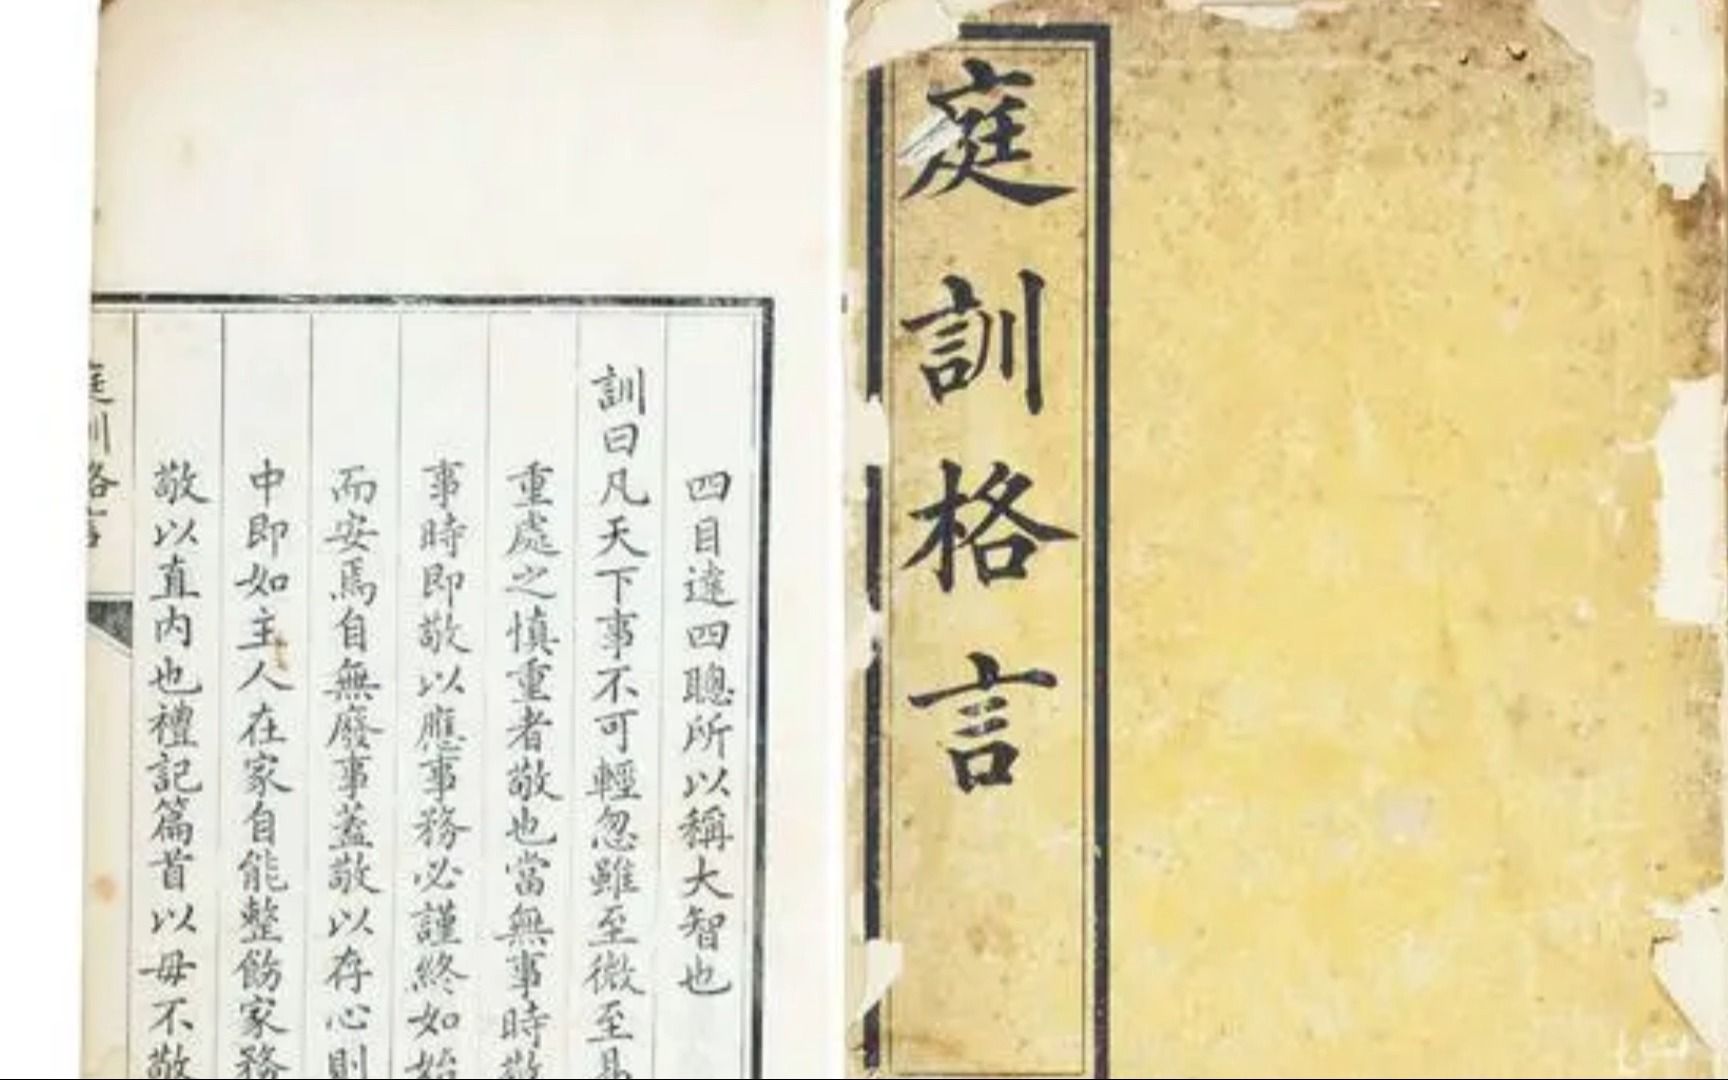 庭訓格言
四目達四聰所以稱大智也
訓曰凡天下事不可輕忽雖至微至易
重處之慎重者敬也當無事時敬
事時即敬以應事務必謹終如始
而安焉自無廢事蓋敬以存心則
中即如主人在家自能整飭家務
敬以直内也禮記篇首以毋不敬
庭訓格言